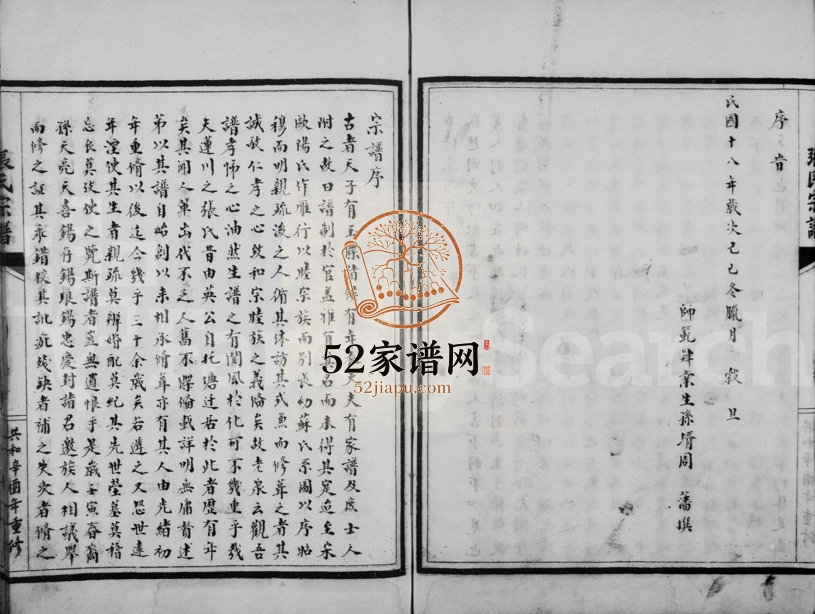 序言
民國十八年歲次己巳冬臘月穀旦
師範肄業生孫壻周 藩撰
張氏宗譜
宗譜序
古者天子有玉牒諸侯有 大夫有家譜及庶士人
附之故曰譜制於官蓋雖有其名而未得其寔迨至宋
歐陽氏作雁行以睦宗族而別長幼蘇氏系圖以序昭
穆而明親疏後之人倘其休訪其式魚而修葺之者其
誠敬仁孝之心敦和宗睦族之義備矣故老泉云觀吾
譜孝悌之心油然生譜之有関風於化可不幾重乎哉
夫蓮川之張氏昔由英公自托塘迁居於此者歷有年
矣其聞人輩出代不乏人篤不譯倫載詳明無庸贅述
第以其譜自始創以來州承脩葺亦有其人由光緒初
年重脩以後迄今幾乎三十余歲矣若遊之又恐世遠
年湮使其生者親疏莫辨婚配莫紀其先世塋墓莫稽
忘長莫攷使之覽斯譜者豈無遺恨乎是歲壬寅春裔
孫天亮天喜錫仔錫琅錫忠慶封諸君邀族人相議舉
而修之証其乖錯校其訛疵殘缺者補之失次者脩之
共和辛酉年重修
張氏宗譜
52家谱网
52jiapu.com
Search